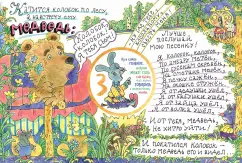 Катится колобок по лесу,
а навстречу ему
МЕДВЕДЬ:
Колобок,
колобок,
я тебя съем!
3
Лучше
послушай
мою песенку!
Я колобок, колобок,
По амбару метён,
По сусекам скребён,
На сметане мешён,
В печку сажён,
На окошке стужён.
Я от дедушки ушёл,
Я от бабушки ушёл,
Я от зайца ушёл,
Я от волка ушёл,
И от тебя, медведь,
не хитро уйти!
И покатился колобок –
только медведь его и видел...